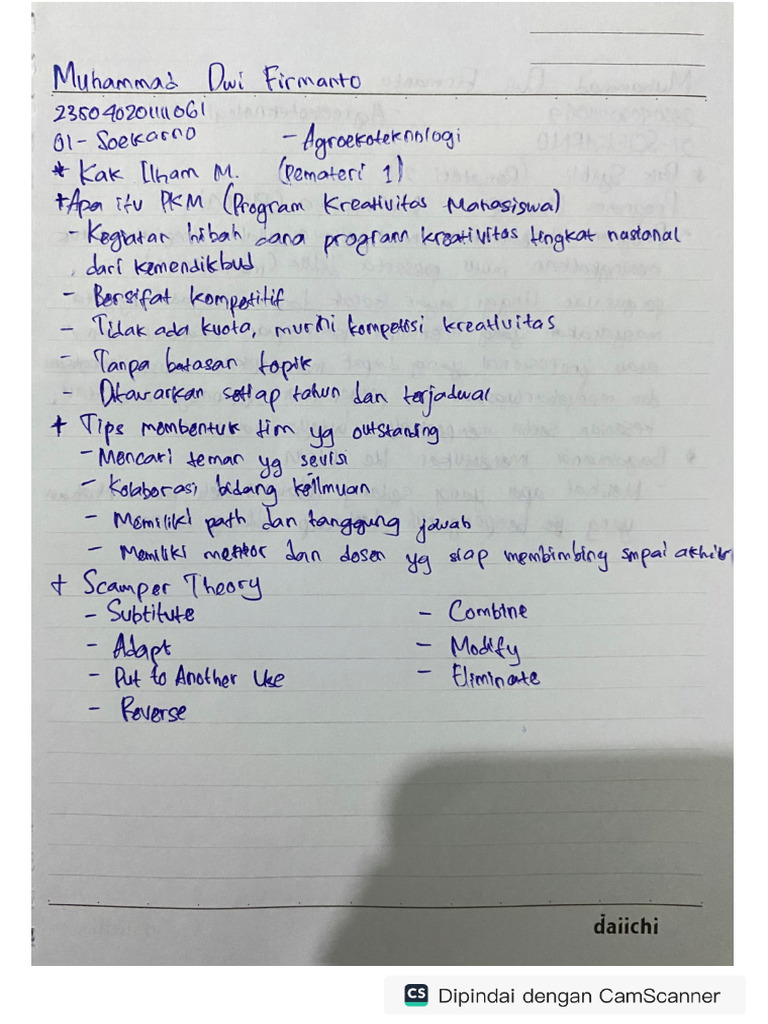 Muhammad Dwi Firmanto
235040201111061
01 - Soekarno - Agroekoteknologi
* Kak Ilham M. (Pemateri 1)
+ Apa itu PKM (Program Kreativitas Mahasiswa)
- Kegiatan hibah dana program kreativitas tingkat nasional
dari kemendikbud
- Bersifat kompetitif
- Tidak ada kuota, murni kompetisi kreativitas
- Tanpa batasan topik
- Ditawarkan setiap tahun dan terjadwal
+ Tips membentuk tim yg outstanding
- Mencari teman yg sevisi
- Kolaborasi bidang keilmuan
- Memiliki path dan tanggung jawab
- Memiliki mentor dan dosen yg siap membimbing smpai akhir
+ Scamper Theory
- Subtitute - Combine
- Adapt - Modify
- Put to Another Use - Eliminate
- Reverse
daiichi
CS Dipindai dengan CamScanner